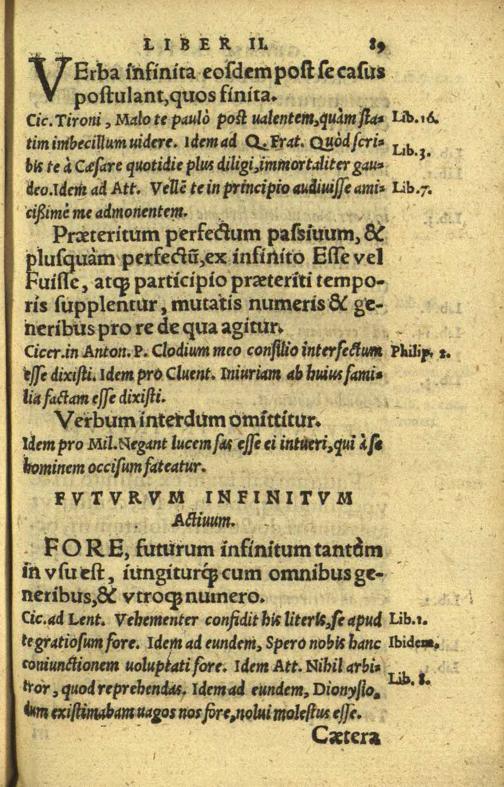 LIBER II. 89
VErba infinita eosdem post se casus
postulant, quos finita.
Cic. Tironi, Malo te paulò post ualentem, quàm sta= Lib. 16.
tim imbecillum uidere. Idem ad Q. Frat. Quòd scri=
bis te à Cæsare quotidie plus diligi, immortaliter gau= Lib. 3.
deo. Idem ad Att. Vellẽ te in principio audiuisse ami= Lib. 7.
cißimè me admonentem.
Præteritum perfectum passiuum, &
plusquàm perfectũ, ex infinito Esse vel
Fuisse, atq; participio præteriti tempo-
ris supplentur, mutatis numeris & ge-
neribus pro re de qua agitur.
Cicer. in Anton. P. Clodium meo consilio interfectum Philip. 2.
esse dixisti. Idem pro Cluent. Iniuriam ab huius fami=
lia factam esse dixisti.
Verbum interdum omittitur.
Idem pro Mil. Negant lucem fas esse ei intueri, qui à se
hominem occisum fateatur.
FVTVRVM INFINITVM
Actiuum.
FORE, futurum infinitum tantùm
in vsu est, iungiturq́; cum omnibus ge-
neribus, & vtroq; numero.
Cic. ad Lent. Vehementer confidit his literis, se apud Lib. 1.
te gratiosum fore. Idem ad eundem, Spero nobis hanc Ibidem,
coniunctionem uoluptati fore. Idem Att. Nihil arbi=
tror, quod reprehendas. Idem ad eundem, Dionysio, Lib. 8.
dum existimabam uagos nos fore, nolui molestus esse.
Cætera